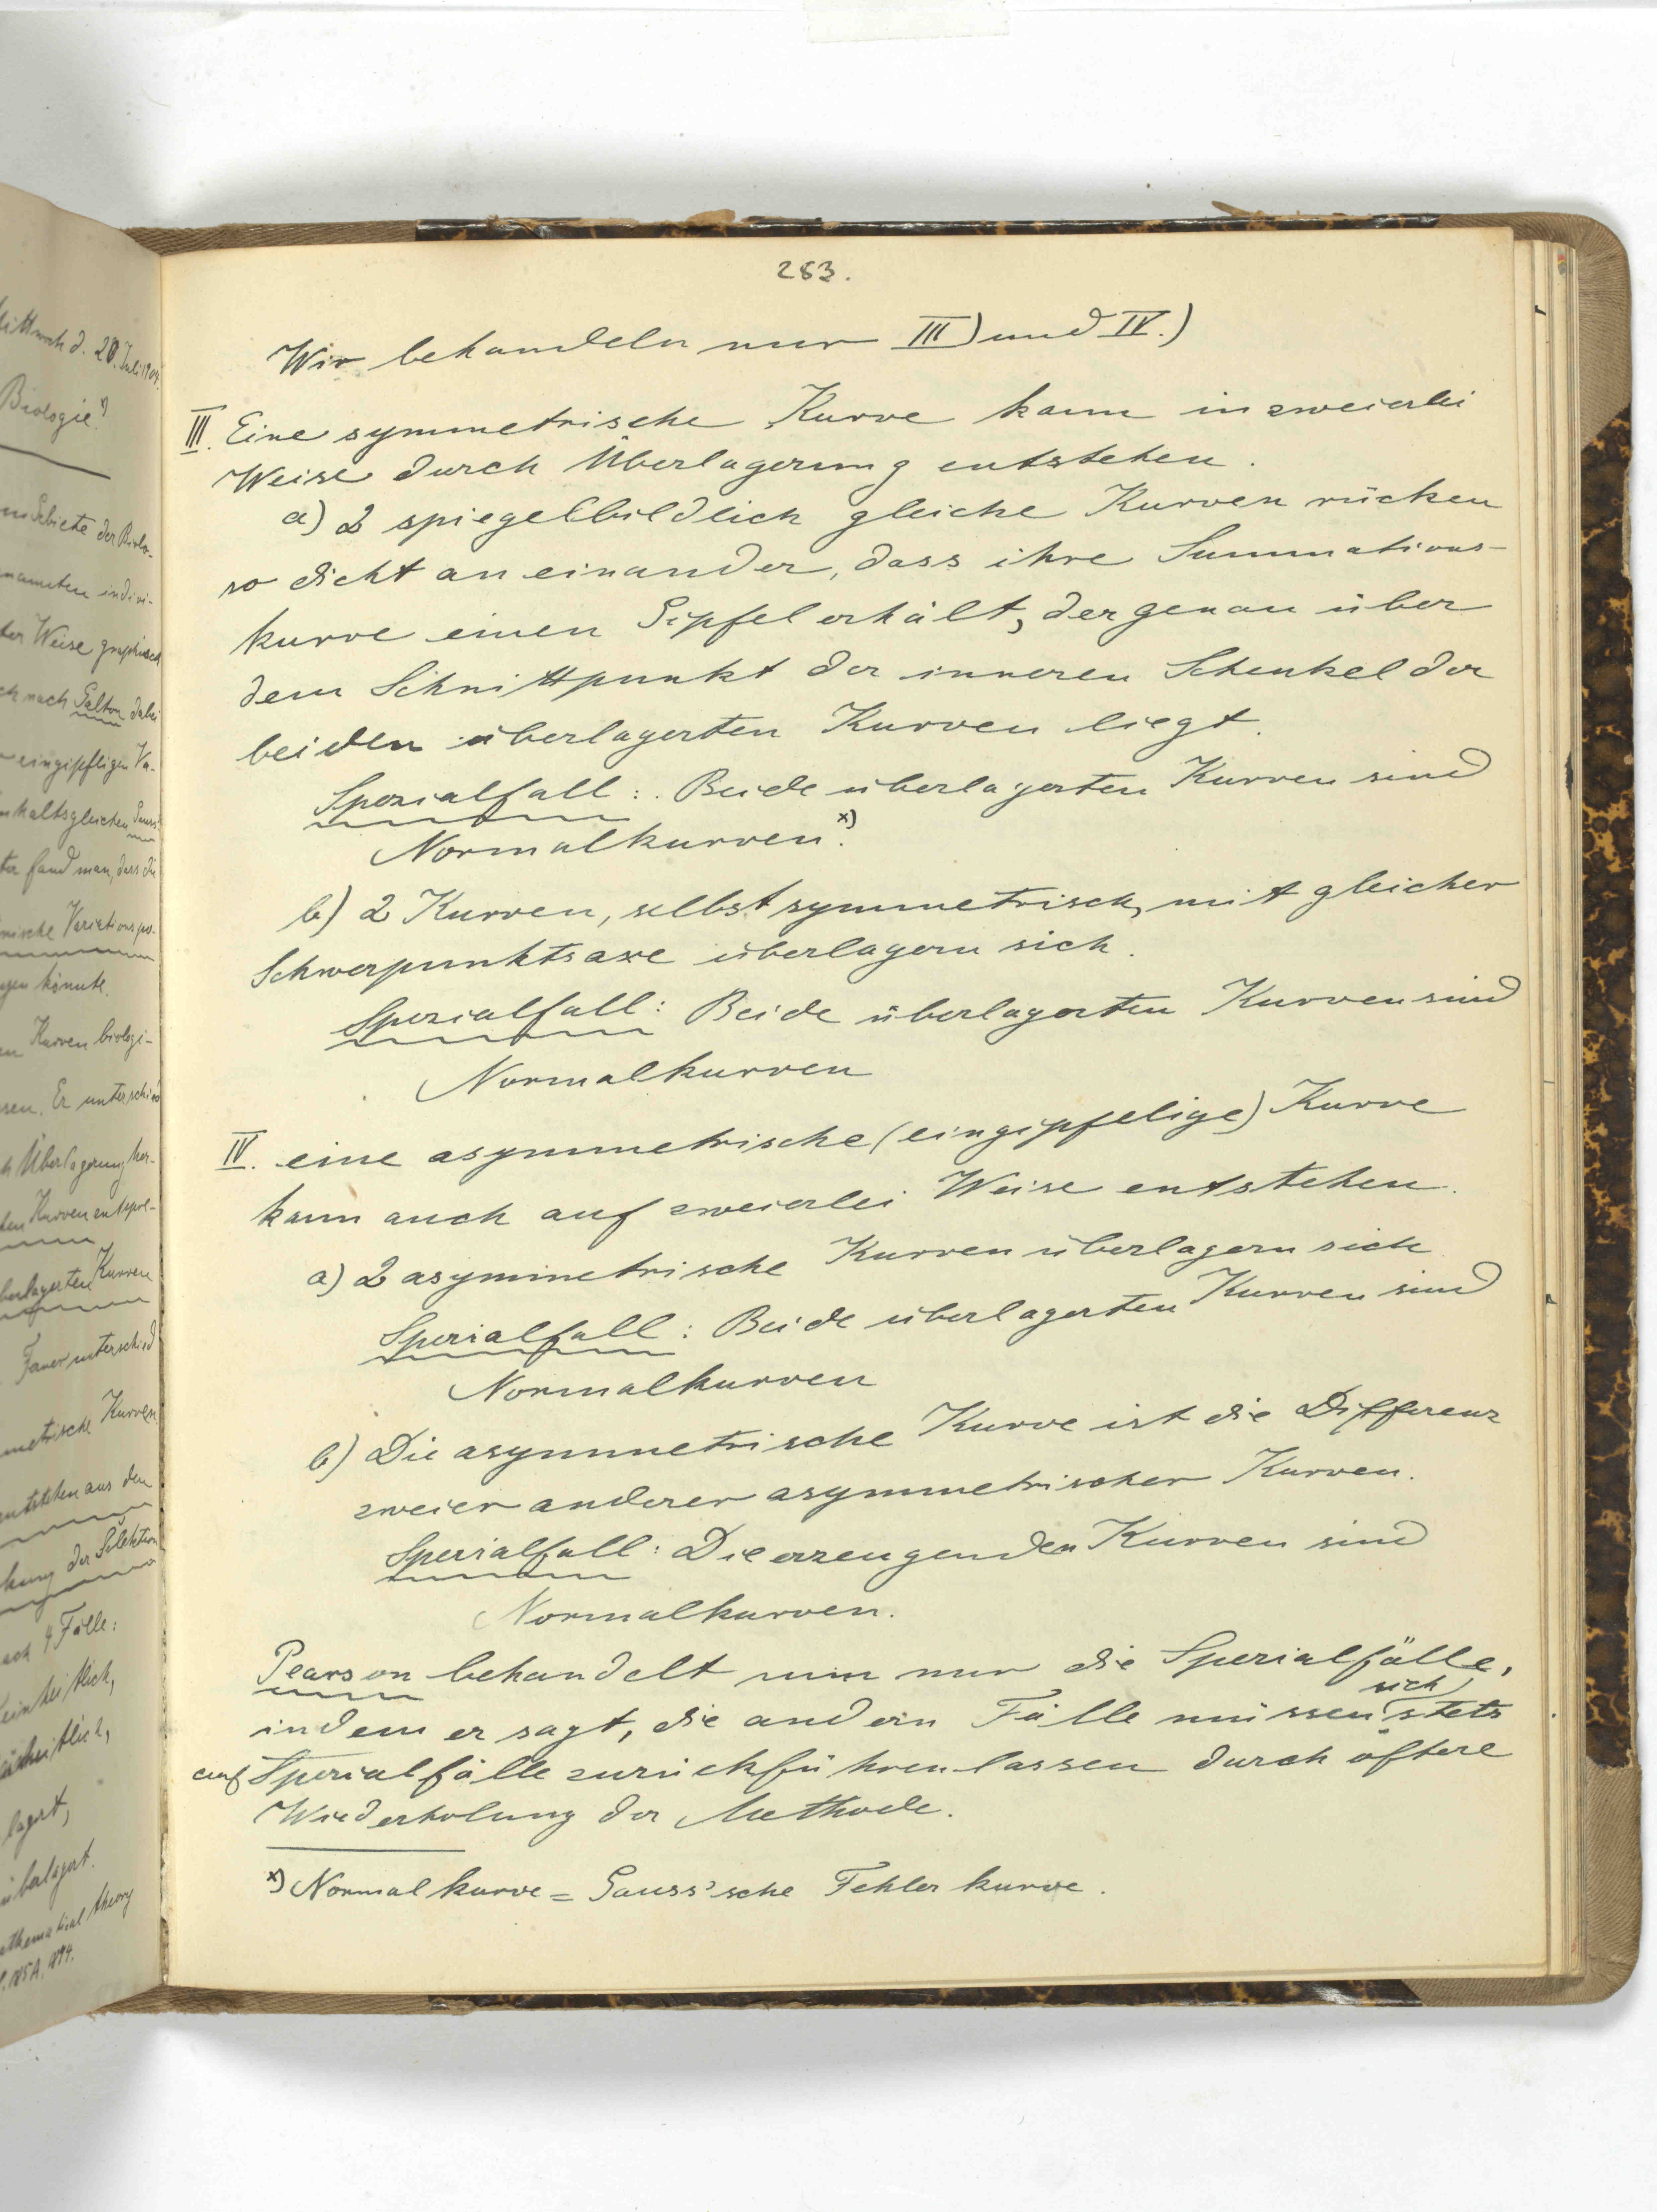 Mittwoch d. 20. Juli 1904.
Biologie x)
Gebiete der Biolo-
nannten indivi-
ter Weise graphisch
nach Galton dabei
eingipfligen Va-
inhaltsgleichen Gauss
fand man, dass die
nische Variations
gen könnte.
Kurven biologi-
sen. Er unterschied
Überlagerung her-
ten Kurven
berlagerten Kurven
Ferner unterschied
metrische Kurven
entstehen aus den
kung der Selektion
4 Fälle:
einheitlich,
lagert,
überlagert.
athematical theory
185 A, 1894.
283.
Wir behandeln nur III) und IV.)
III. Eine symmetrische Kurve kann in zweierlei
Weise durch Überlagerung entstehen.
a) 2 spiegelbildlich gleiche Kurven rücken
so dicht an einander, dass ihre Summations-
kurve einen Gipfel erhält, der genau über
dem Schnittpunkt der inneren Schenkel der
beiden überlagerten Kurven liegt.
Spezialfall: Beide überlagerten Kurven sind
Normalkurven. x)
b) 2 Kurven, selbst symmetrisch, mit gleicher
Schwerpunktsaxe überlagern sich.
Spezialfall: Beide überlagerten Kurven sind
Normalkurven
IV. eine asymmetrische (eingipfelige) Kurve
kann auch auf zweierlei Weise entstehen.
a) 2 asymmetrische Kurven überlagern sich
Spezialfall: Beide überlagerten Kurven sind
Normalkurven
b) Die asymmetrische Kurve ist die Differenz
zweier anderer asymmetrischer Kurven.
Spezialfall: Die erzeugenden Kurven sind
Normalkurven.
Pearson behandelt nun nur die Spezialfälle,
indem er sagt, die andern Fälle müssen sich stets
auf Spezialfälle zurückführen lassen durch öftere
Wiederholung der Methode.
x) Normalkurve = Gauss'sche Fehlerkurve.